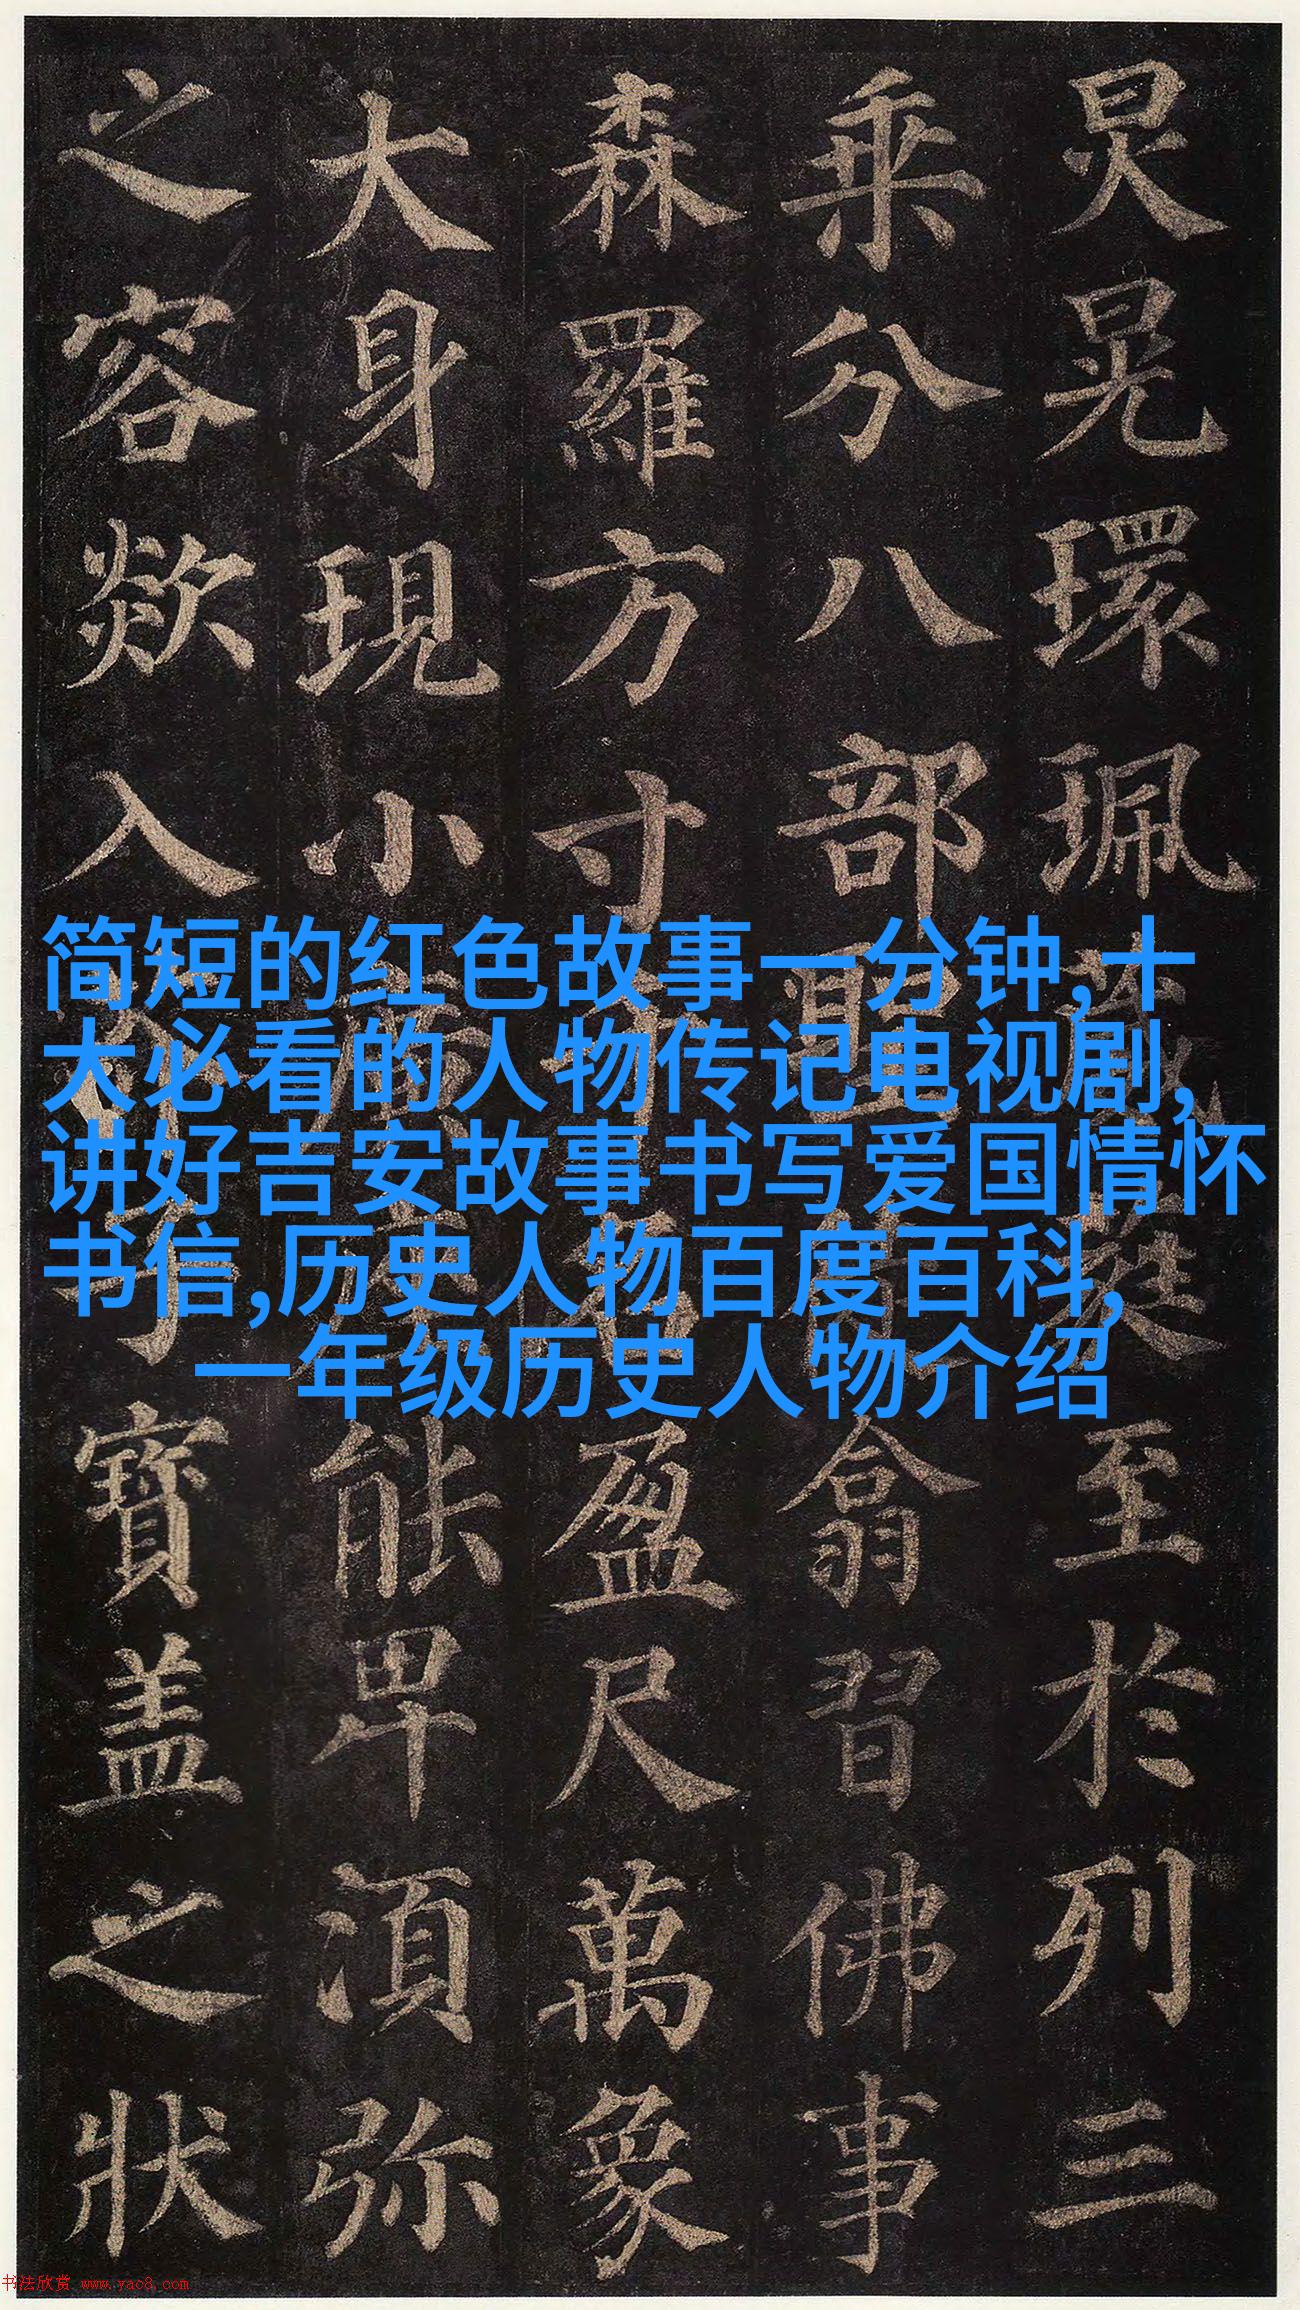 炅晃環珮至於列三
乘分八部聖翕習佛事
森羅方寸盈尺萬象
大身現小廣能卑湏弥
之容欻入子寶盖之狀
简短的红色故事一分钟,十
大必看的人物传记电视剧,
讲好吉安故事书写爱国情怀
书信,历史人物百度百科,
一年级历史人物介绍
书法欣赏 www.yac8.com